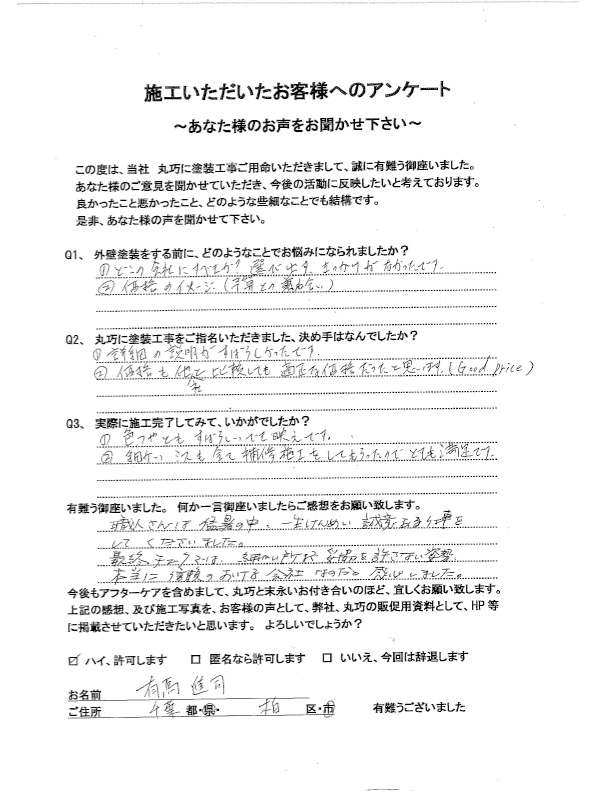 施工いただいたお客様へのアンケート
～あなた様のお声をお聞かせ下さい～
この度は、当社 丸巧に塗装工事ご用命いただきまして、誠に有難う御座いました。
あなた様のご意見を聞かせていただき、今後の活動に反映したいと考えております。
良かったこと悪かったこと、どのような些細なことでも結構です。
是非、あなた様の声を聞かせて下さい。
Q1、 外壁塗装をする前に、どのようなことでお悩みになられましたか？
① どこの会社にすべきか？ 選び出す きっかけがなかったです.
② 価格のイメージ (予算との兼ね合い)
Q2、 丸巧に塗装工事をご指名いただきました、決め手はなんでしたか？
① 詳細の説明がすばらしかったです.
② 価格も他社と比較しても 適正な価格だったと思います. (Good price)
Q3、 実際に施工完了してみて、いかがでしたか？
① 色つやとも すばらしい 映えです.
② 細かい 所も全て 補修施工をしてもらったので とても満足です.
有難う御座いました。 何か一言御座いましたらご感想をお願い致します。
職人さんは 猛暑の中、一生けんめい 誠意ある仕事を
して くださいました。
最終チェックでは 細かい所まで 妥協を許さない姿勢
本当に 信頼のおける 会社 なのだと 感心しました。
今後もアフターケアを含めまして、丸巧と末永いお付き合いのほど、宜しくお願い致します。
上記の感想、及び施工写真を、お客様の声として、弊社、丸巧の販促用資料として、HP 等
に掲載させていただきたいと思います。 よろしいでしょうか？
☑ ハイ、許可します □ 匿名なら許可します □ いいえ、今回は辞退します
お名前 有馬 進司
ご住所 千葉 都・県・ 柏 区・市 有難うございました